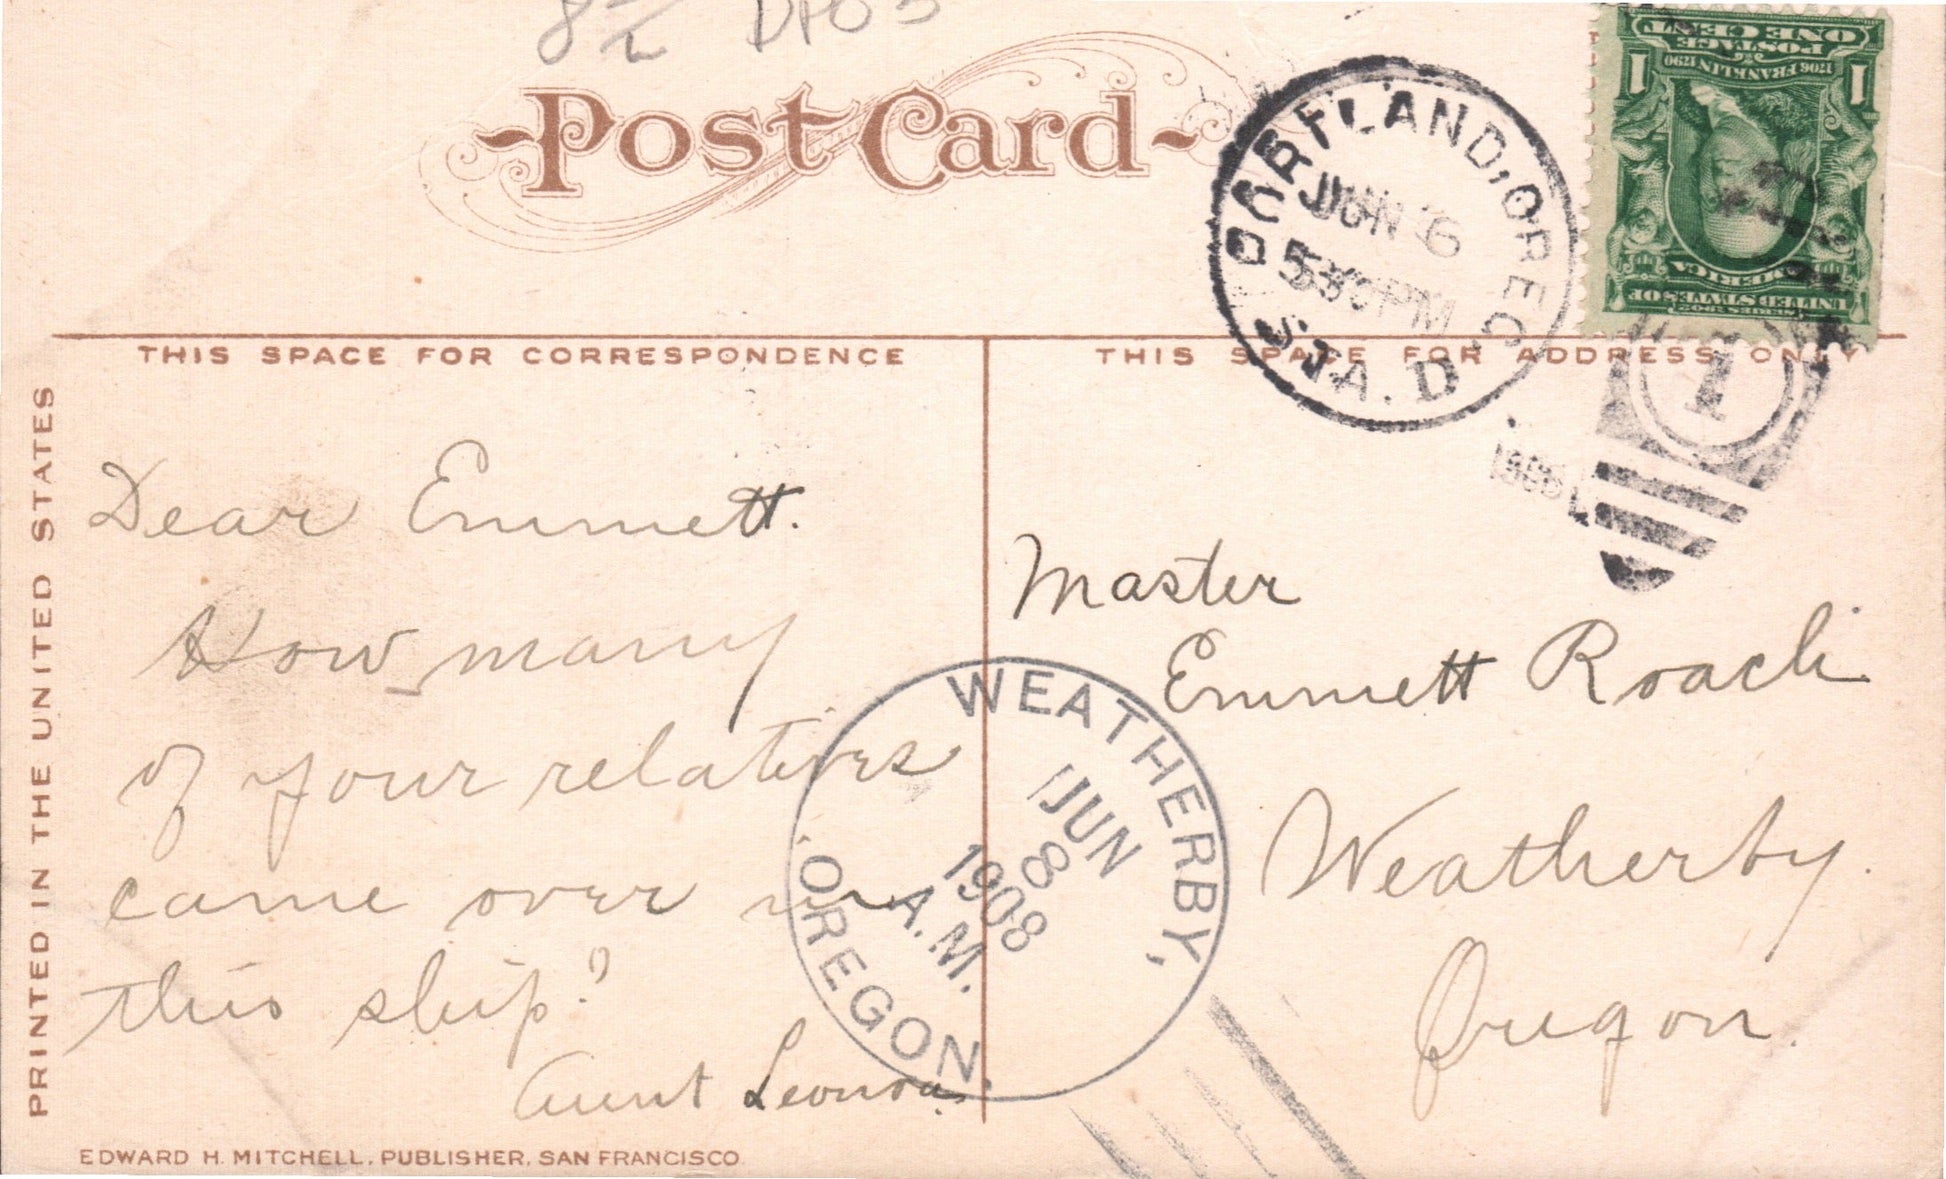 8½ DPO 3
Post Card
THIS SPACE FOR CORRESPONDENCE
THIS SPACE FOR ADDRESS ONLY
PRINTED IN THE UNITED STATES
PORTLAND, OREG.
JUN 6
5 30 PM
STA. D.
1
POSTAGE
ONE CENT
1706 FRANKLIN 1790
1 1
UNITED STATES OF
AMERICA
SERIES 1902
Dear Emmett.
How many
of your relatives
came over in
this ship?
Aunt Leonora.
Master
Emmett Roach
Weatherby.
Oregon.
WEATHERBY,
OREGON.
JUN
8
1908
A.M.
EDWARD H. MITCHELL, PUBLISHER, SAN FRANCISCO